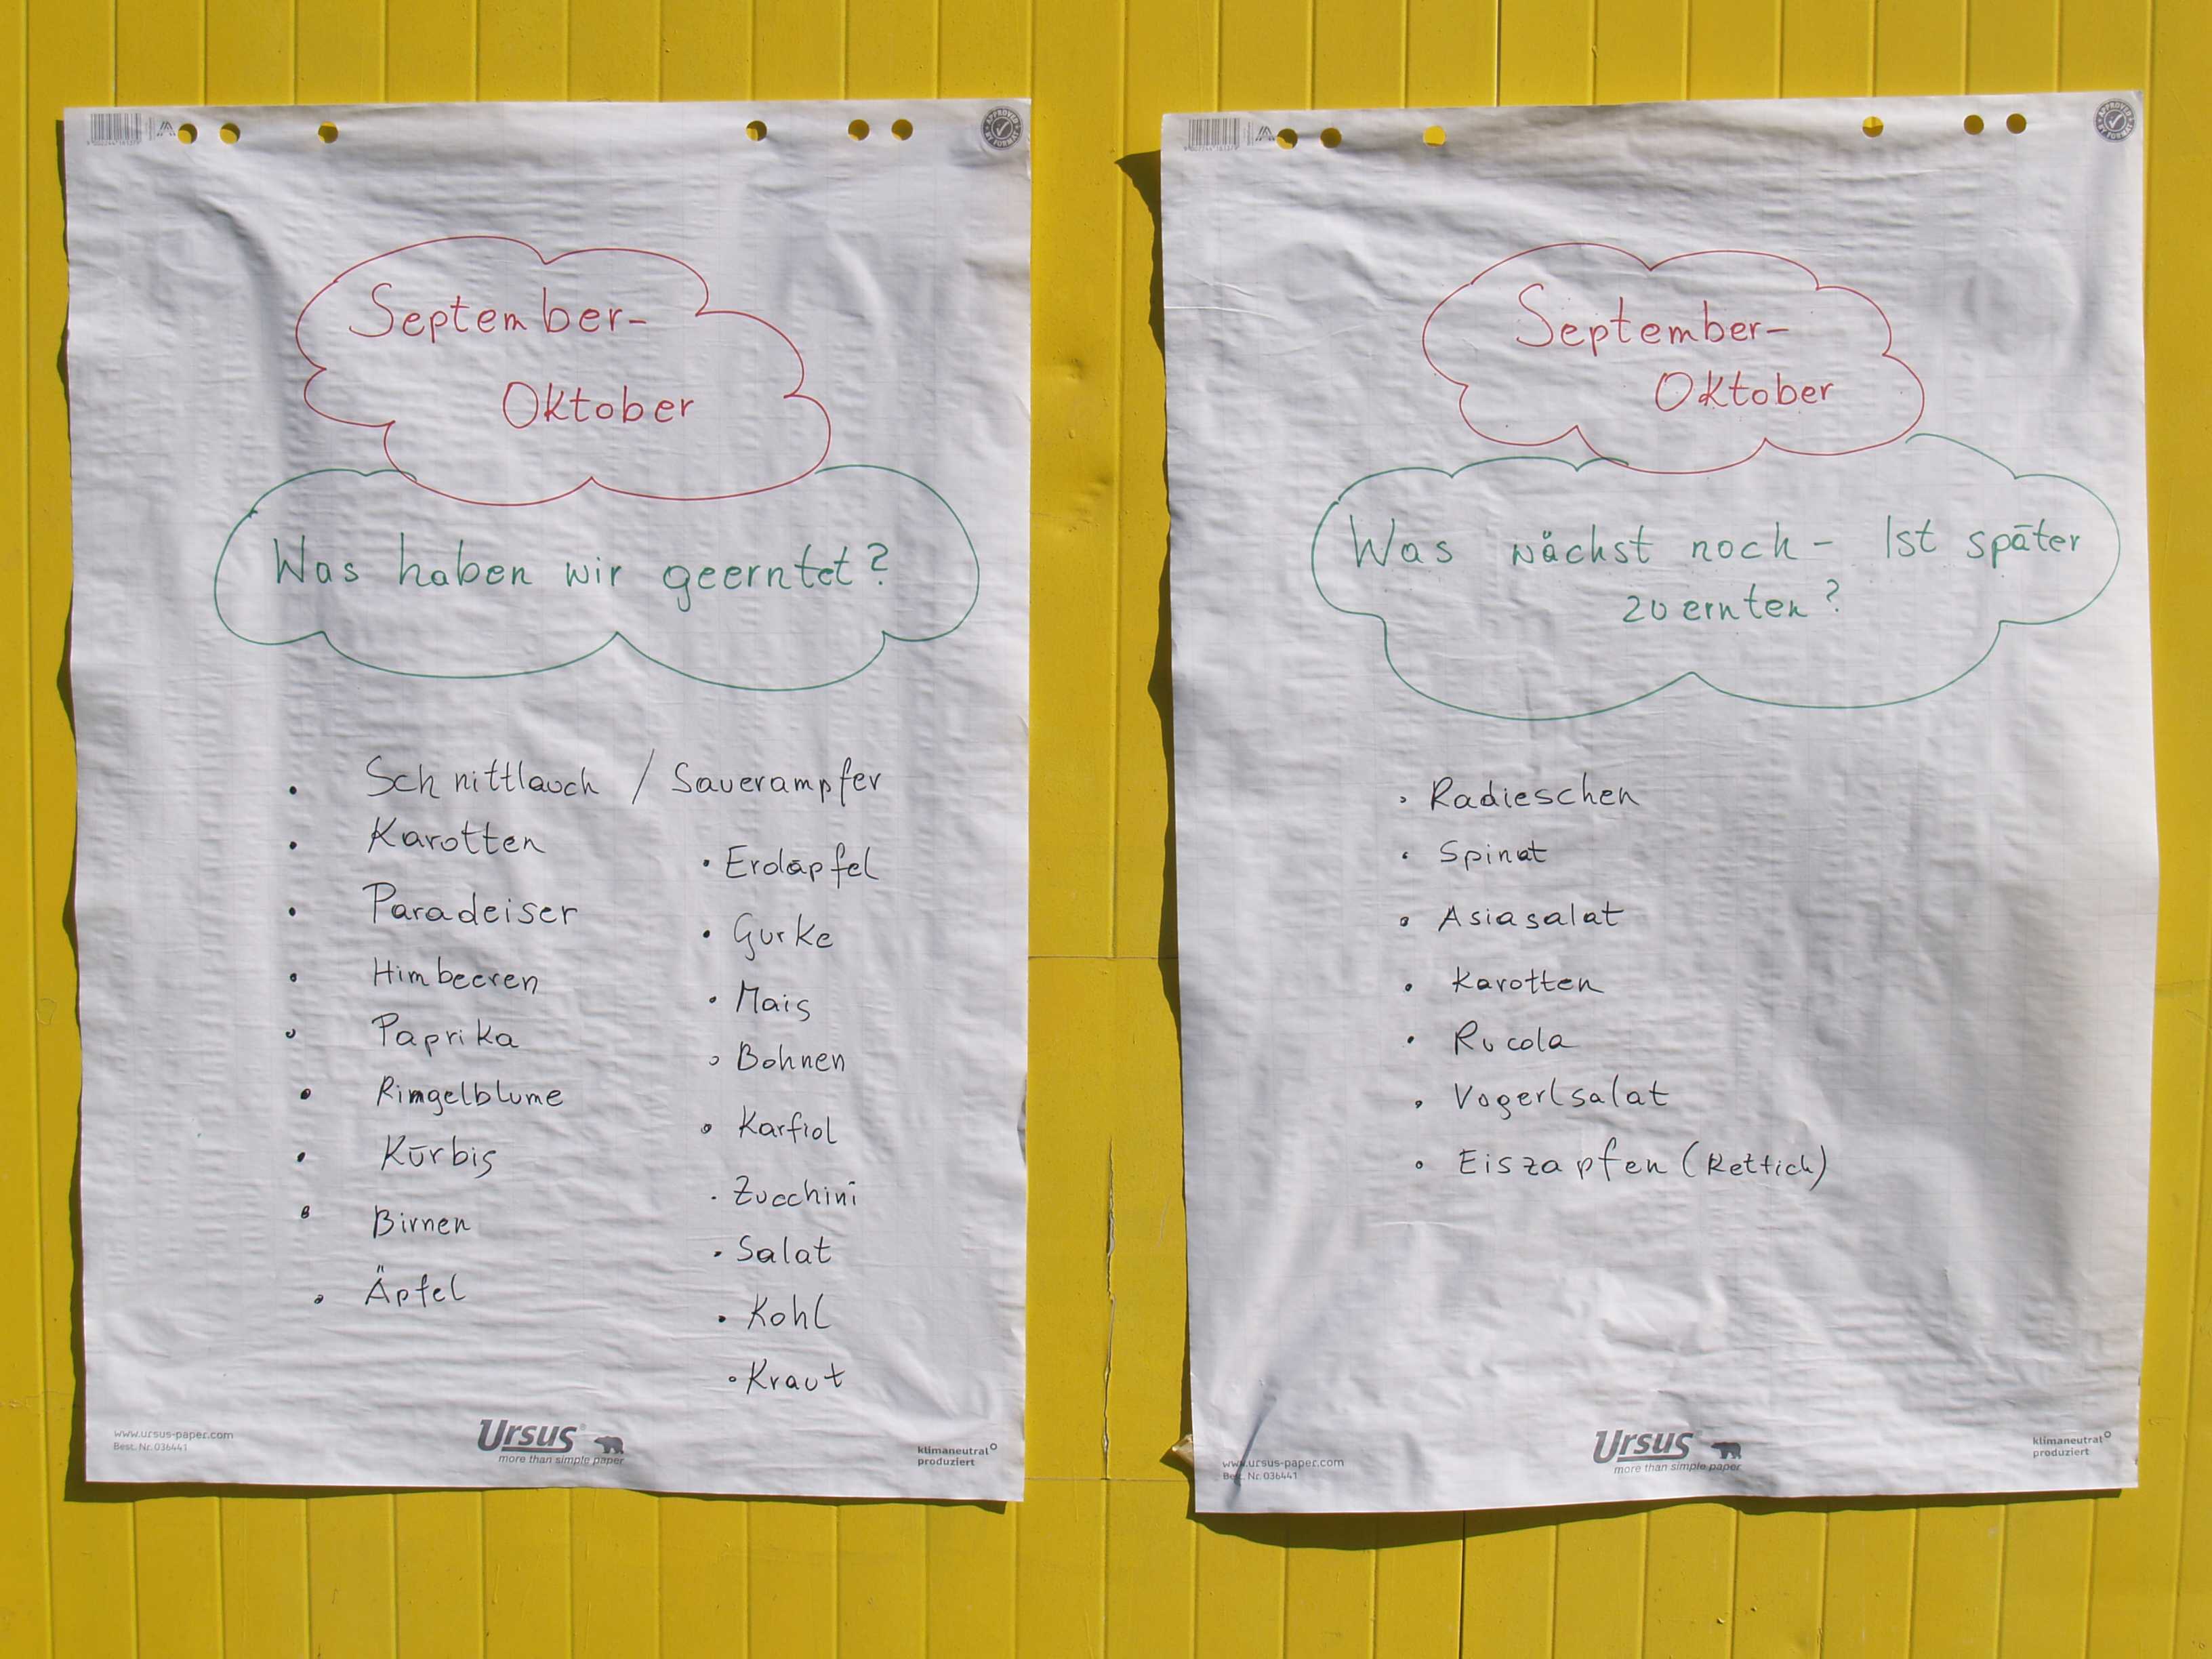 September-
Oktober
Was haben wir geerntet?
• Schnittlauch / Sauerampfer
• Karotten
• Paradeiser
• Himbeeren
• Paprika
• Ringelblume
• Kürbis
• Birnen
• Äpfel
• Erdäpfel
• Gurke
• Mais
• Bohnen
• Karfiol
• Zucchini
• Salat
• Kohl
• Kraut
www.ursus-paper.com
Best. Nr. 036441
Ursus®
more than simple paper
klimaneutral
produziert
APPROVED BY FORMAT
September-
Oktober
Was wächst noch - Ist später
zu ernten?
• Radieschen
• Spinat
• Asiasalat
• Karotten
• Rucola
• Vogerlsalat
• Eiszapfen (Rettich)
www.ursus-paper.com
Best. Nr. 036441
Ursus®
more than simple paper
klimaneutral
produziert
APPROVED BY FORMAT